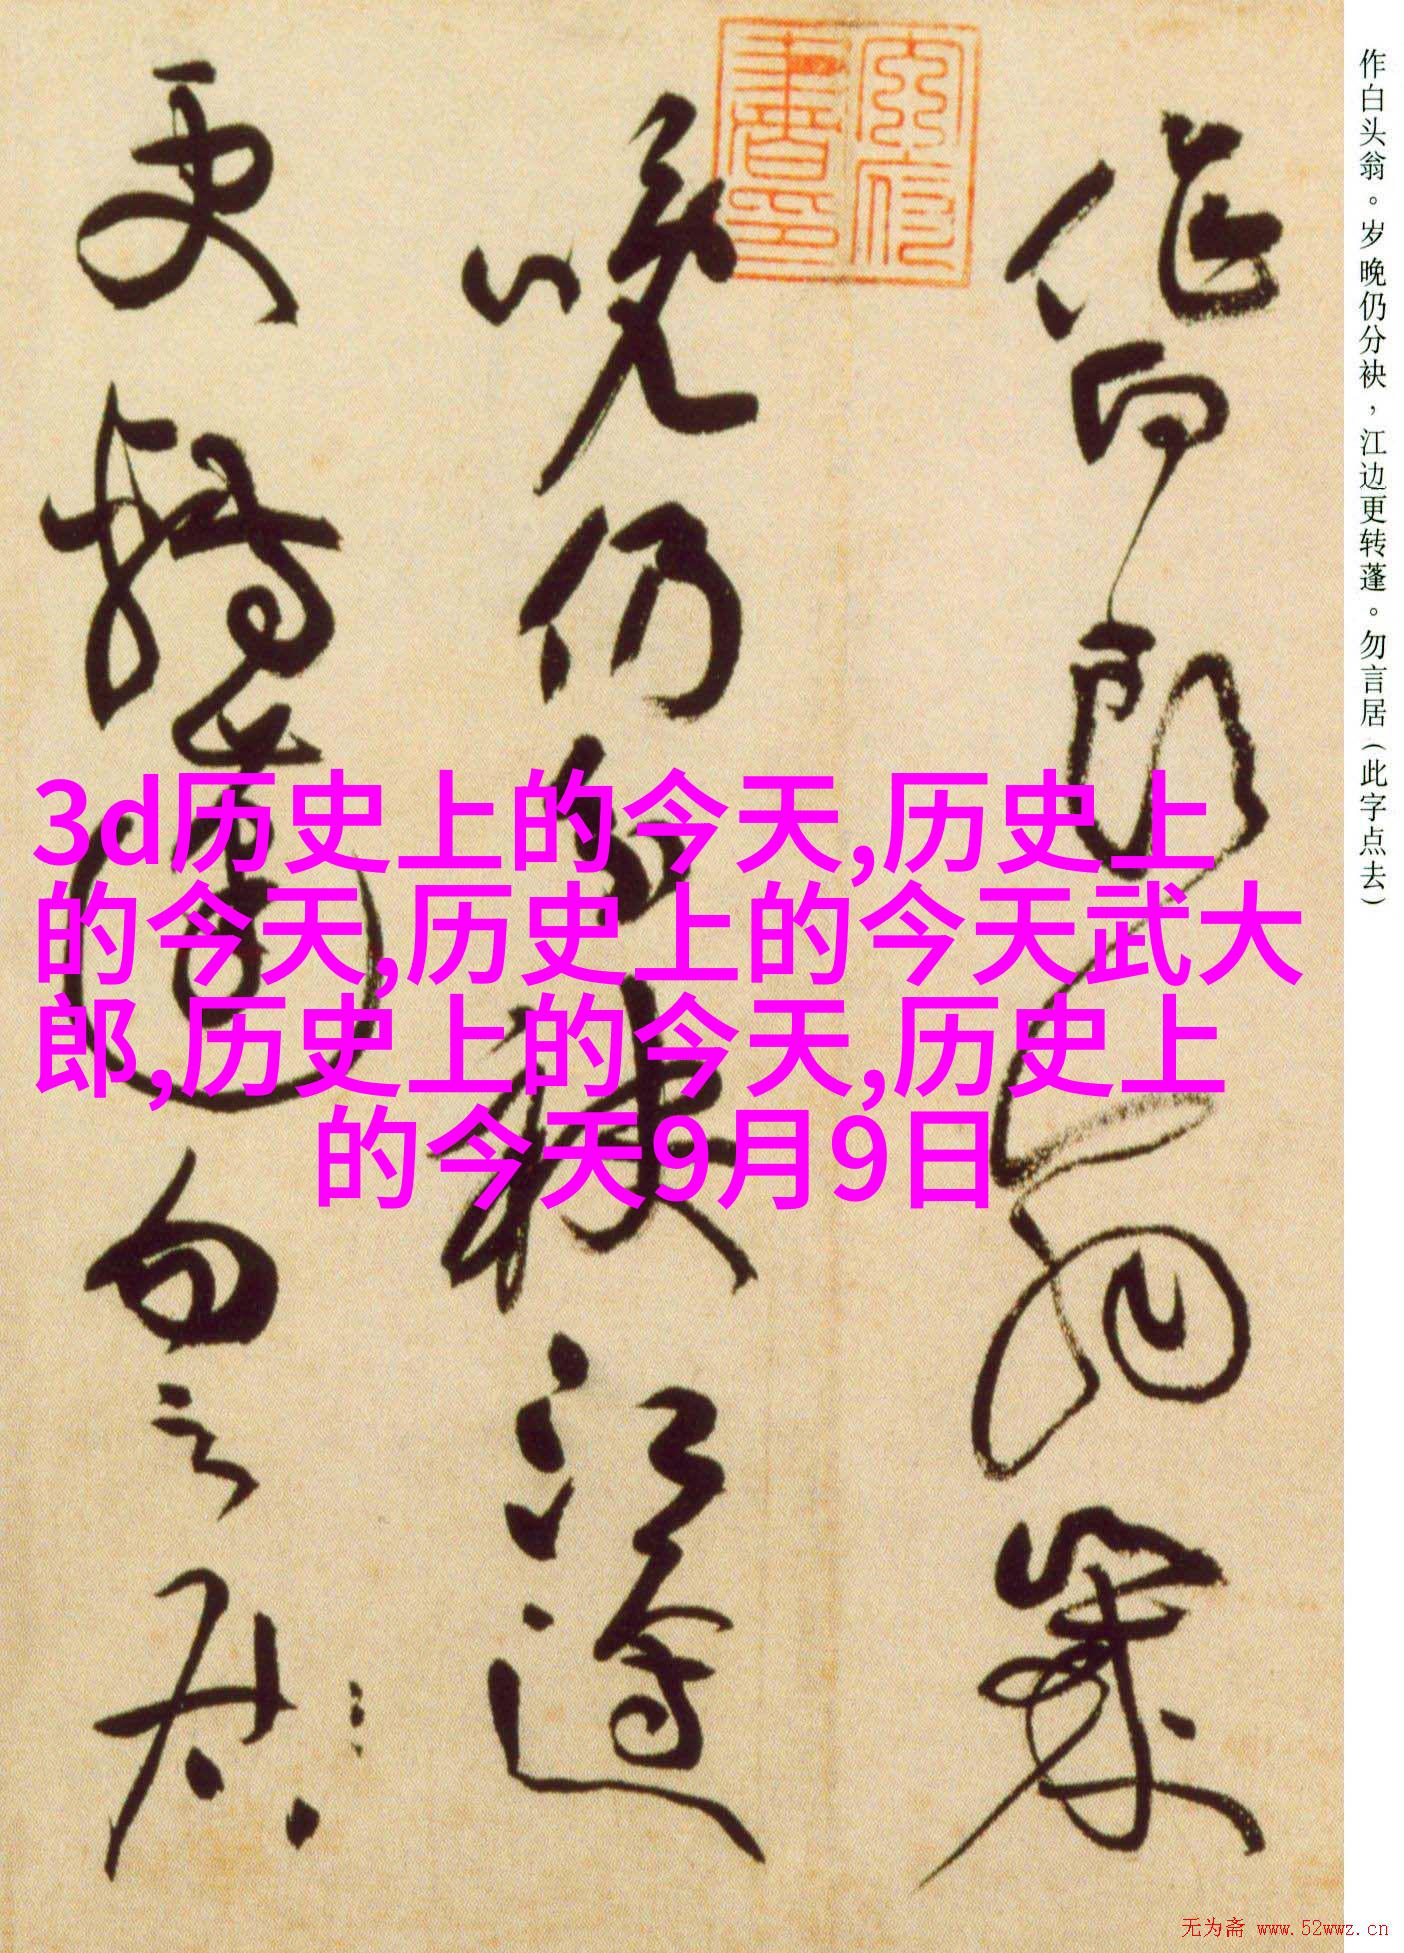 作白头翁。岁晚仍分袂，江边更转蓬。勿言居(此字点去)
作白头翁岁
晚仍分袂江边
更转蓬勿言居
3d历史上的今天,历史上
的今天,历史上的今天武大
郎,历史上的今天,历史上
的今天9月9日
无为斋 www.52wwz.cn